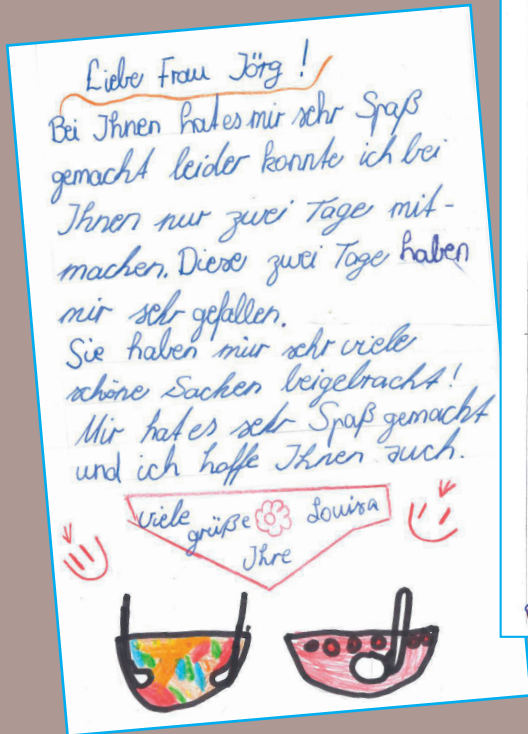 Liebe Frau Jörg!
Bei Ihnen hat es mir sehr Spaß
gemacht leider konnte ich bei
Ihnen nur zwei Tage mit-
machen. Diese zwei Tage haben
mir sehr gefallen.
Sie haben mir sehr viele
schöne Sachen beigebracht!
Mir hat es sehr Spaß gemacht
und ich hoffe Ihnen auch.
viele grüße Louisa
Ihre